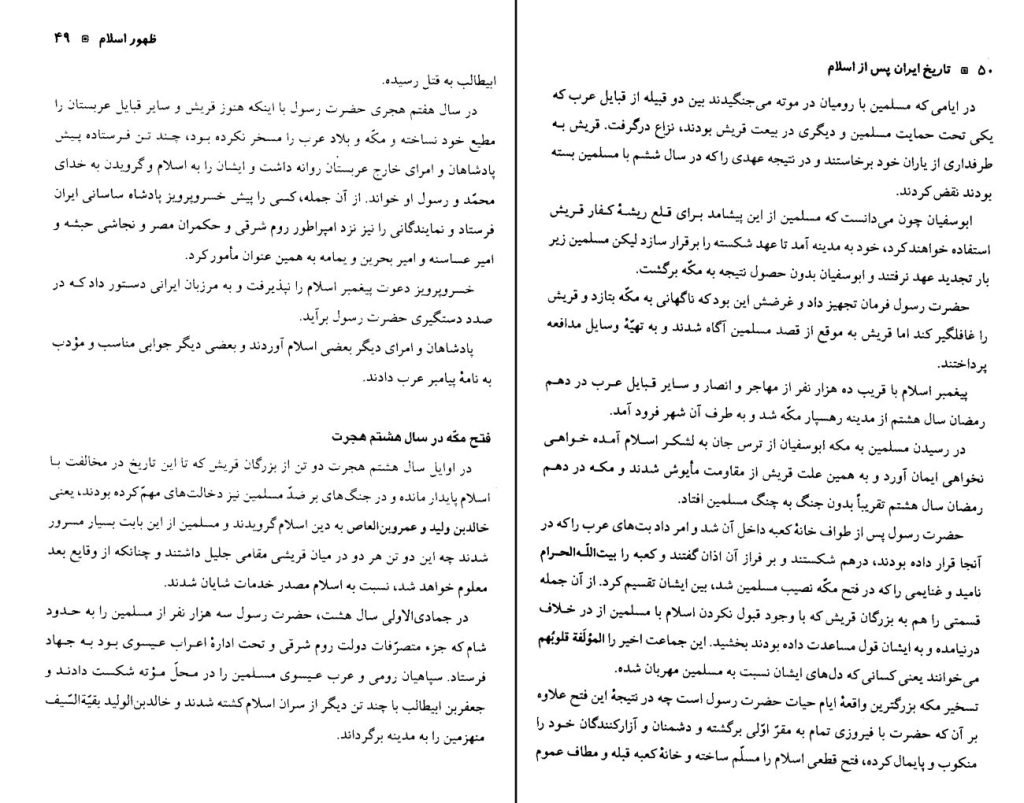 ظهور اسلام ◘ ۴۹
ابیطالب به قتل رسیده.
در سال هفتم هجری حضرت رسول با اینکه هنوز قریش و سایر قبایل عربستان را
مطیع خود نساخته و مکّه و بلاد عرب را مسخر نکرده بود، چند تن فرستاده پیش
پادشاهان و امرای خارج عربستان روانه داشت و ایشان را به اسلام و گرویدن به خدای
محمّد و رسول او خواند. از آن جمله، کسی را پیش خسروپرویز پادشاه ساسانی ایران
فرستاد و نمایندگانی را نیز نزد امپراطور روم شرقی و حکمران مصر و نجاشی حبشه و
امیر عساسنه و امیر بحرین و یمامه به همین عنوان مأمور کرد.
خسروپرویز دعوت پیغمبر اسلام را نپذیرفت و به مرزبان ایرانی دستور داد که در
صدد دستگیری حضرت رسول برآید.
پادشاهان و امرای دیگر بعضی اسلام آوردند و بعضی دیگر جوابی مناسب و مؤدب
به نامهٔ پیامبر عرب دادند.
فتح مکّه در سال هشتم هجرت
در اوایل سال هشتم هجرت دو تن از بزرگان قریش که تا این تاریخ در مخالفت با
اسلام پایدار مانده و در جنگ‌های بر ضدّ مسلمین نیز دخالت‌های مهمّ کرده بودند، یعنی
خالدبن ولید و عمروبن‌العاص به دین اسلام گرویدند و مسلمین از این بابت بسیار مسرور
شدند چه این دو تن هر دو در میان قریشی مقامی جلیل داشتند و چنانکه از وقایع بعد
معلوم خواهد شد، نسبت به اسلام مصدر خدمات شایان شدند.
در جمادی‌الاولی سال هشت، حضرت رسول سه هزار نفر از مسلمین را به حدود
شام که جزء متصرّفات دولت روم شرقی و تحت ادارهٔ اعراب عیسوی بود به جهاد
فرستاد. سپاهیان رومی و عرب عیسوی مسلمین را در محلّ مؤته شکست دادند و
جعفربن ابیطالب با چند تن دیگر از سران اسلام کشته شدند و خالدبن‌الولید بقیّةالسّیف
منهزمین را به مدینه برگرداند.
۵۰ ◘ تاریخ ایران پس از اسلام
در ایامی که مسلمین با رومیان در موته می‌جنگیدند بین دو قبیله از قبایل عرب که
یکی تحت حمایت مسلمین و دیگری در بیعت قریش بودند، نزاع درگرفت. قریش به
طرفداری از یاران خود برخاستند و در نتیجه عهدی را که در سال ششم با مسلمین بسته
بودند نقض کردند.
ابوسفیان چون می‌دانست که مسلمین از این پیشامد برای قلع ریشهٔ کفار قریش
استفاده خواهند کرد، خود به مدینه آمد تا عهد شکسته را برقرار سازد لیکن مسلمین زیر
بار تجدید عهد نرفتند و ابوسفیان بدون حصول نتیجه به مکّه برگشت.
حضرت رسول فرمان تجهیز داد و غرضش این بود که ناگهانی به مکّه بتازد و قریش
را غافلگیر کند اما قریش به موقع از قصد مسلمین آگاه شدند و به تهیّهٔ وسایل مدافعه
پرداختند.
پیغمبر اسلام با قریب ده هزار نفر از مهاجر و انصار و سایر قبایل عرب در دهم
رمضان سال هشتم از مدینه رهسپار مکّه شد و به طرف آن شهر فرود آمد.
در رسیدن مسلمین به مکه ابوسفیان از ترس جان به لشکر اسلام آمده خواهی
نخواهی ایمان آورد و به همین علت قریش از مقاومت مأیوش شدند و مکه در دهم
رمضان سال هشتم تقریباً بدون جنگ به چنگ مسلمین افتاد.
حضرت رسول پس از طواف خانهٔ کعبه داخل آن شد و امر داد بت‌های عرب را که در
آنجا قرار داده بودند، درهم شکستند و بر فراز آن اذان گفتند و کعبه را بیت‌اللّه‌الحرام
نامید و غنایمی را که در فتح مکّه نصیب مسلمین شد، بین ایشان تقسیم کرد. از آن جمله
قسمتی را هم به بزرگان قریش که با وجود قبول نکردن اسلام با مسلمین از در خلاف
درنیامده و به ایشان قول مساعدت داده بودند بخشید. این جماعت اخیر را المؤلّفة قلوبُهم
می‌خوانند یعنی کسانی که دل‌های ایشان نسبت به مسلمین مهربان شده.
تسخیر مکه بزرگترین واقعهٔ ایام حیات حضرت رسول است چه در نتیجهٔ این فتح علاوه
بر آن که حضرت با فیروزی تمام به مقرّ اوّلی برگشته و دشمنان و آزارکنندگان خود را
منکوب و پایمال کرده، فتح قطعی اسلام را مسلّم ساخته و خانهٔ کعبه قبله و مطاف عموم